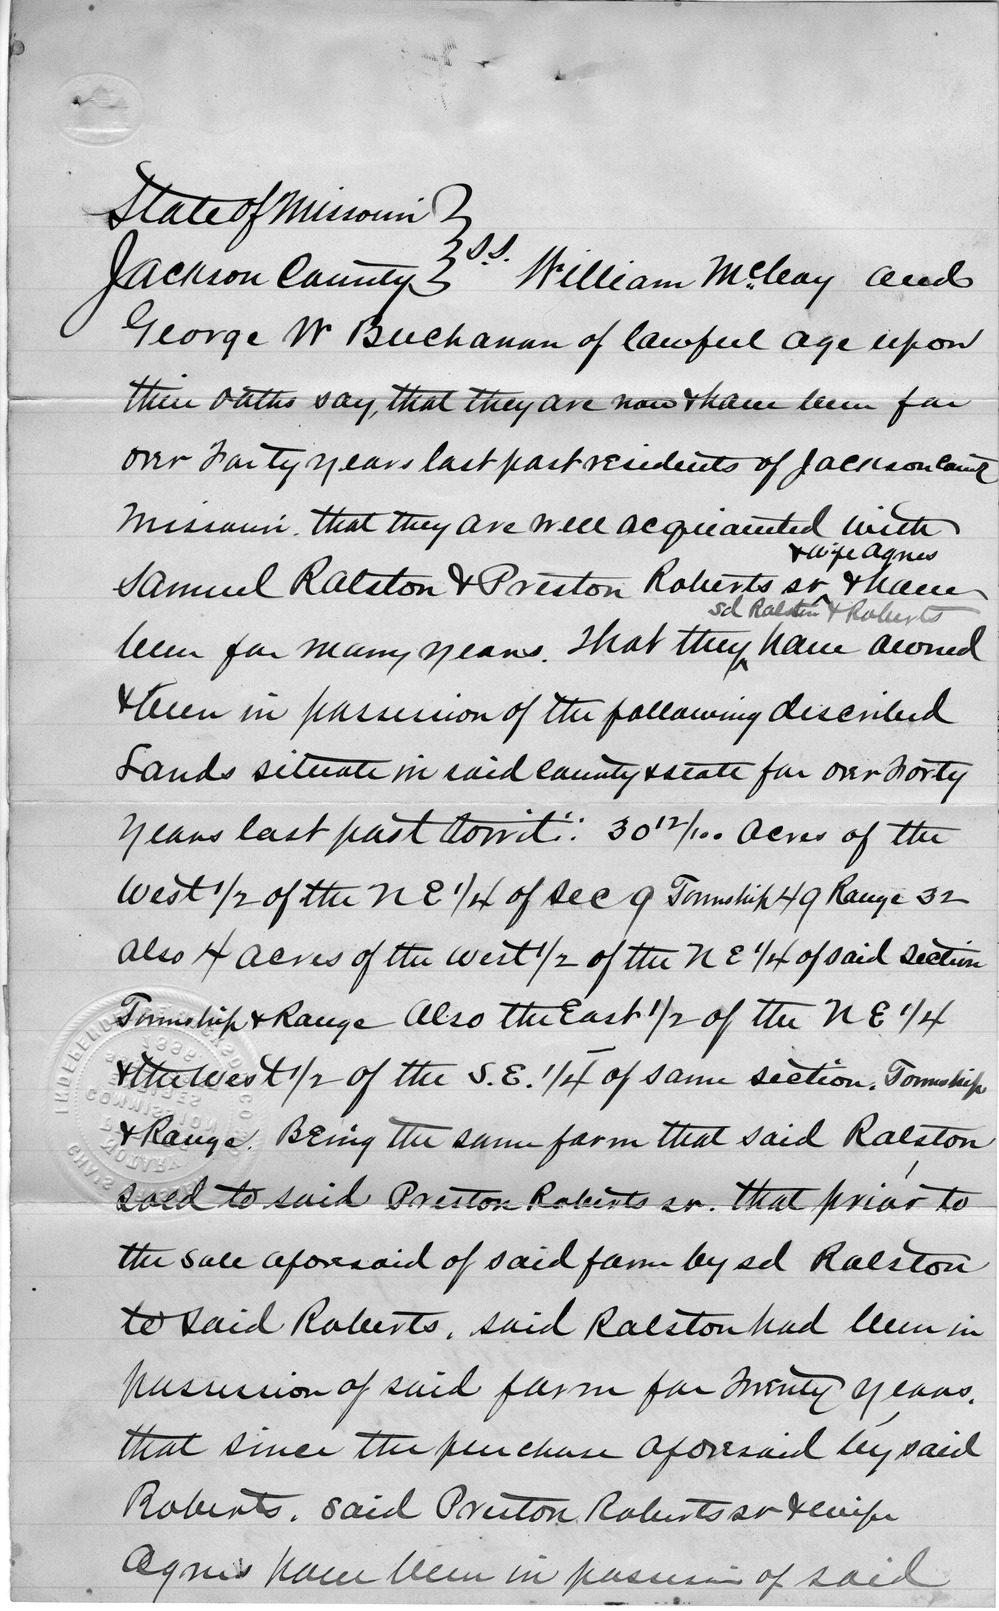 State of Missouri }
Jackson County } S.S. William McCoy and
George W Buchanan of lawful age upon
their oaths say, that they are now & have been for
over Forty years last past residents of Jackson County
Missouri. that they are well acquainted with
& wife Agnes
Samuel Ralston & Preston Roberts sr ^ & have
sd Ralston & Roberts
been for many years. That they ^ have owned
& been in possession of the following described
Lands situate in said County & state for over Forty
years last past towit:: 30 12/100 acres of the
West 1/2 of the N E 1/4 of Sec 9 Township 49 Range 32
also 4 acres of the West 1/2 of the N E 1/4 of said Section
Township & Range Also the East 1/2 of the N E 1/4
& the West 1/2 of the S.E. 1/4 of same section. Township
& Range. Being the same farm that said Ralston
sold to said Preston Roberts sr. that prior to
the sale aforesaid of said farm by sd Ralston
to said Roberts, said Ralston had been in
possession of said farm for Twenty years.
that since the purchase aforesaid by said
Roberts, said Preston Roberts sr & wife
Agnes have been in possession of said